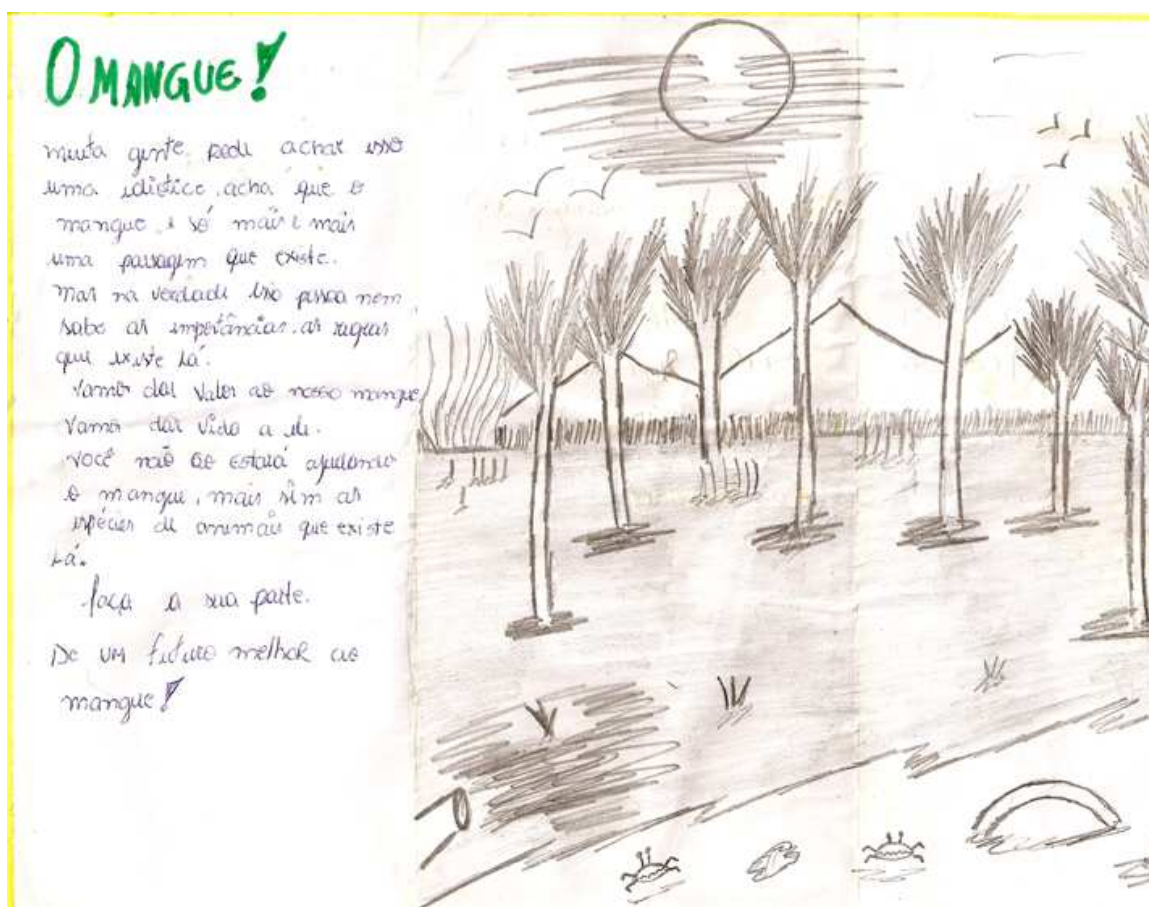 O MANGUE!
muita gente pode achar isso
uma idiotice, acha que o
mangue é só mais e mais
uma passagem que existe.
Mas na verdade essa pessoa nem
sabe as importâncias. as regras
que existe lá.
Vamos dar valor ao nosso mangue
Vamos dar vida a ele.
Você não só estará ajudando
o mangue, mais sim as
espécies de animais que existe
lá.
faça a sua parte.
De um futuro melhor ao
mangue!